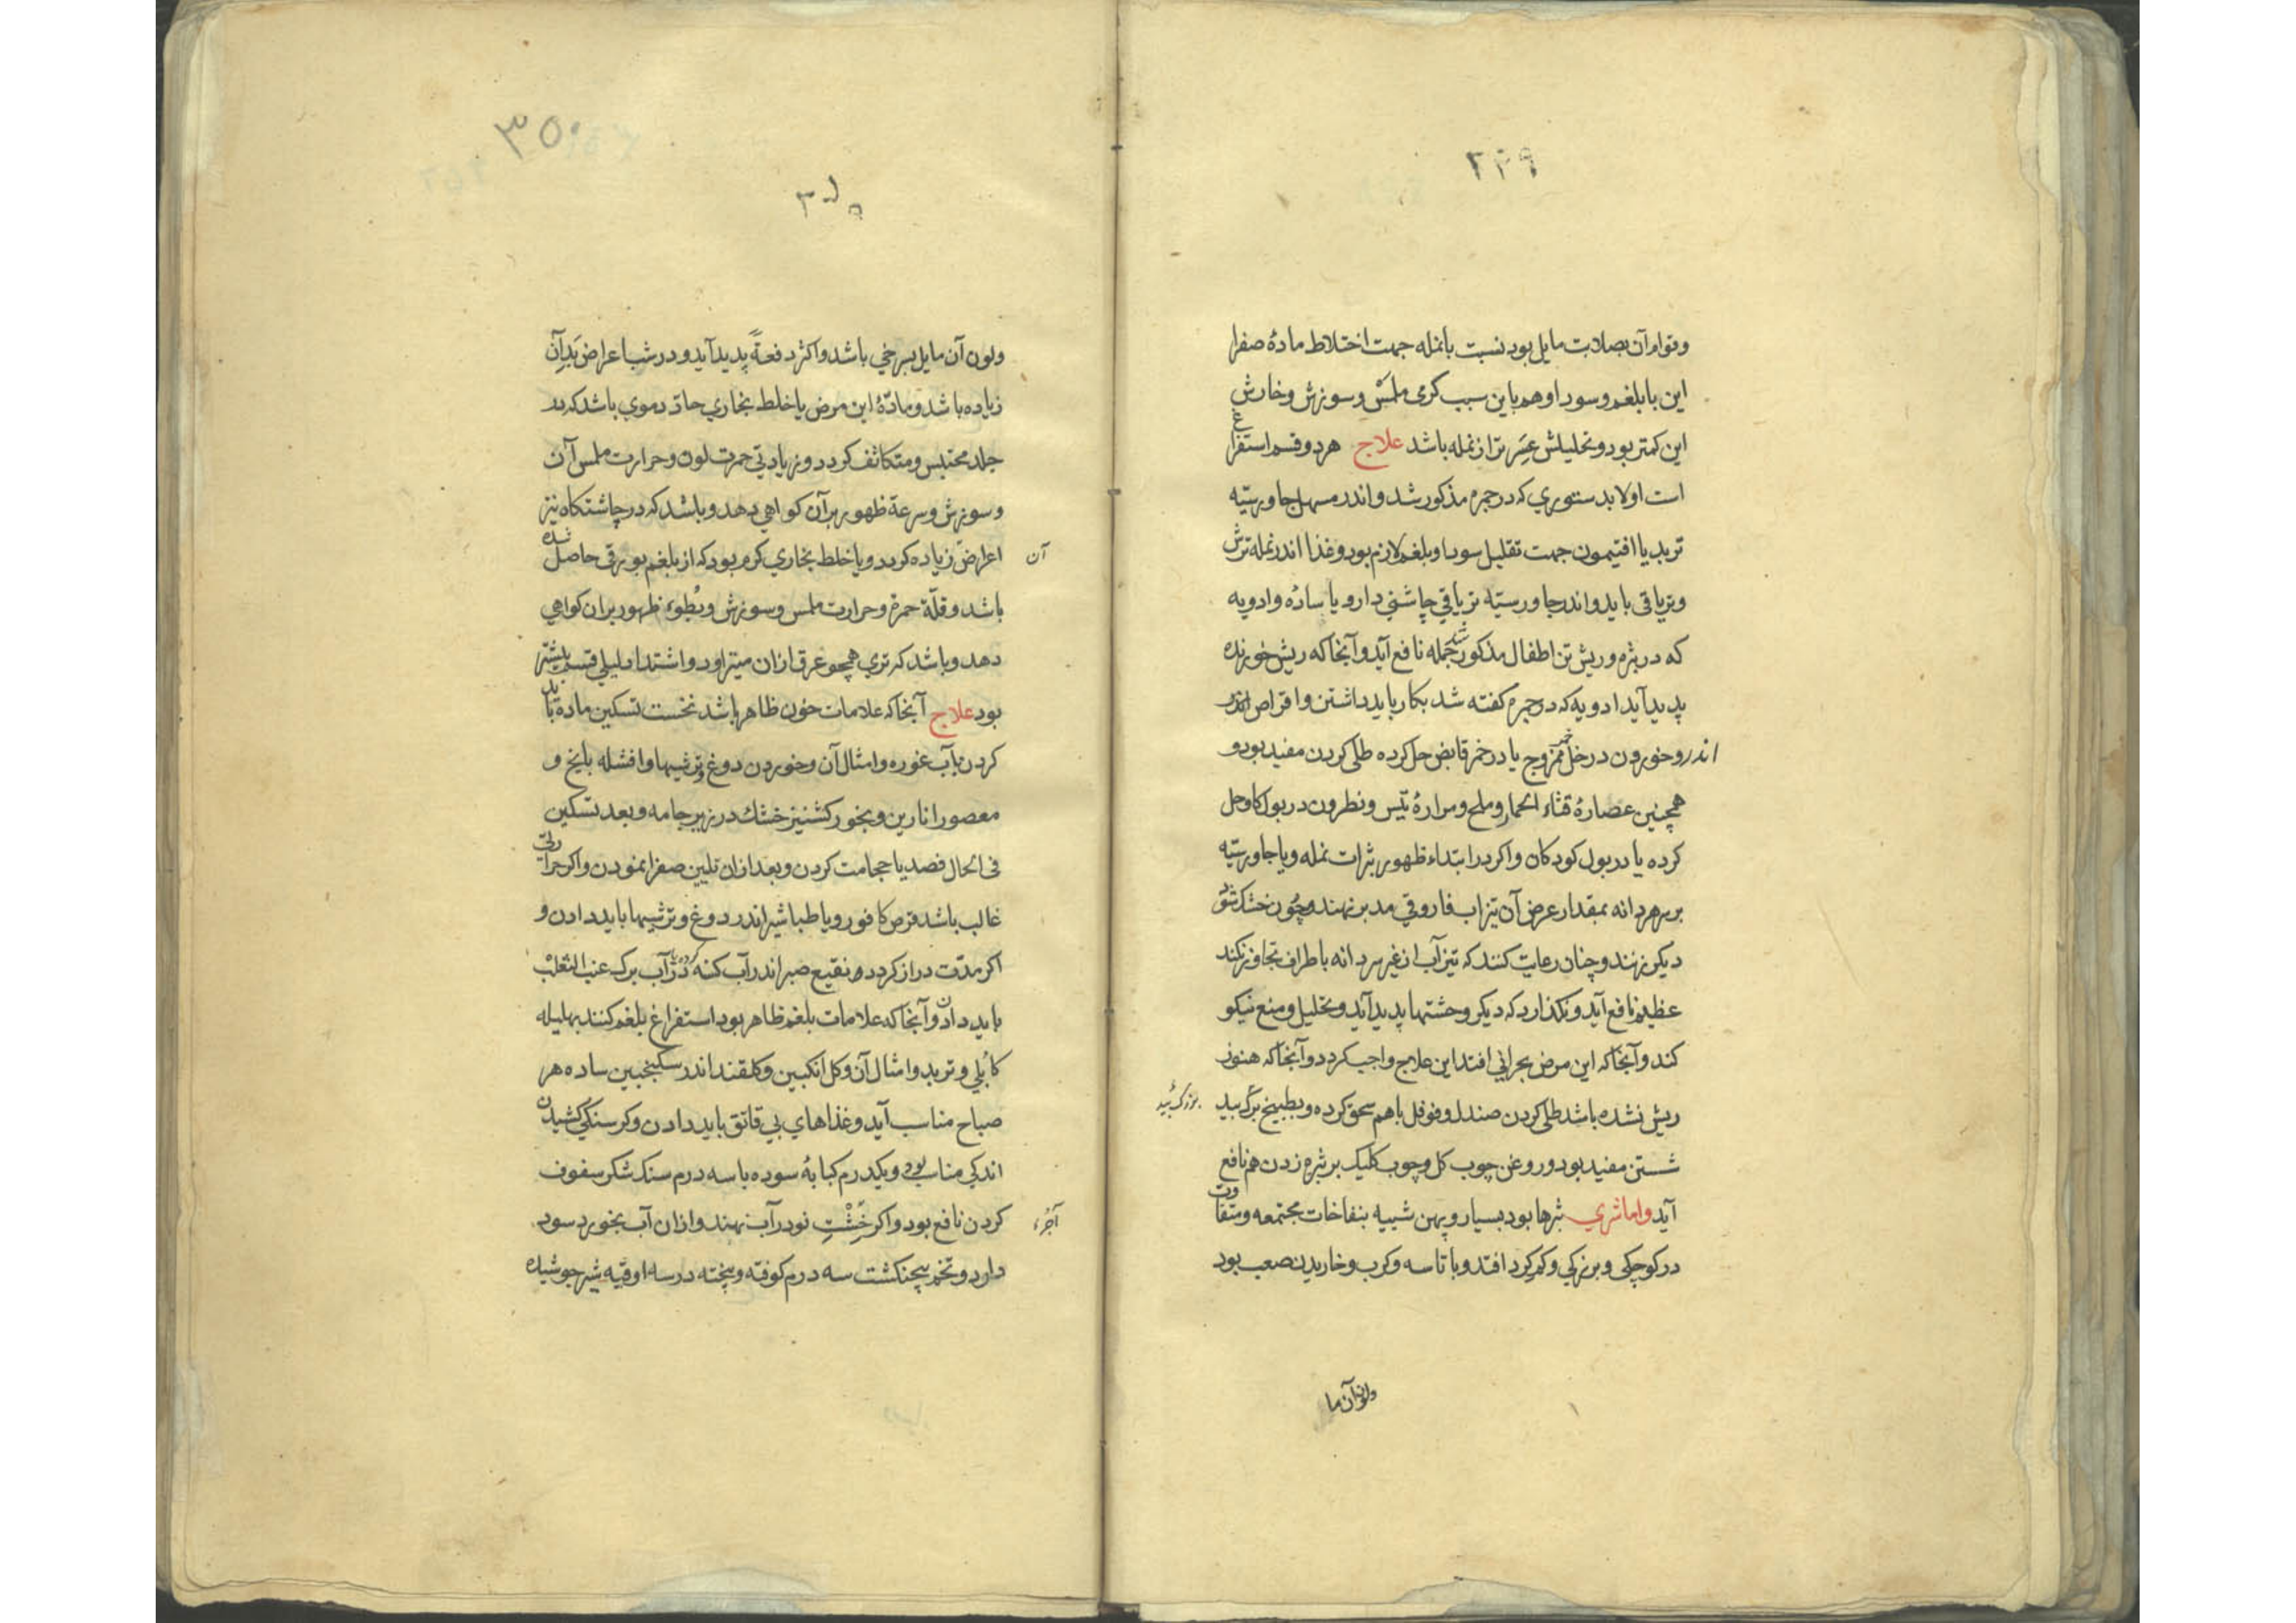 ۳۴۹
وقوام آن بصلابت مایل بود نسبت با نمله جهت اختلاط مادهٔ صفرا
این با بلغم وسودا وهم باین سبب کرمی ملمس وسوزش وخارش
این کمتر بود وتحلیلش عسر تر از نمله باشد علاج هر دو قسم استفراغ
است اولا بدستوری که در جمره مذکور شد واندر مسهل جاورسیّه
تربد یا افتیمون جهت تقلیل سودا وبلغم لازم بود وغذا اندر نمله ترش
وتریاقی باید واندر جاورسیّه تریاقی چاشنی دار ویا ساده وادویه
که در بثره وریش تن اطفال مذکور شد جمله نافع آید وآنجا که ریش خورنده
پدید آید ادویه که در جمره کفته شد بکار باید داشتن واقراص اندر
اندروخورون در خل خمر ممزوج یا در خمر قابض حل کرده طلی کردن مفید بود و
همچنین عصارهٔ قثاء الحمار وملح ومرارهٔ تیس ونطرون در بول کاو حل
کرده یا در بول کودکان واکر در ابتداء ظهور بثرات نمله ویا جاورسیّه
بر سر هر دانه بمقدار عرض آن تیزاب فاروقی مدبر نهند وچون خشک شود
دیکر نهند وچنان رعایت کنند که تیزآب از غیر سر دانه باطراف تجاوز نکند
عظیم نافع آید ونکذارد که دیکر وحشتها پدید آید وتحلیل ومنع نیکو
کند وآنجا که این مرض بحرانی افتد این علاج واجب کردد وآنجا که هنوز
ریش نشده باشد طلی کردن صندل وفوفل باهم سحق کرده وبطبیخ برک بید
شستن مفید بود وروغن چوب کل وچوب کلیک بر بثره زدن هم نافع
آید واما شری بثرها بود بسیار وپهن شبیه بنفاخات مجتمعه ومتفاوت
در کوچکی وبزرکی وکم کرد افتد وبا تاسه وکرب وخاریدن صعب بود
ولون آن ما
۳۵۰
۳۵۰
ولون آن مایل بسرخی باشد واکثر دفعةً پدید آید ودر شب اعراض بد آن
زیاده باشد ومادّهٔ این مرض یا خلط بخاری حادّ دموی باشد که در
جلد محتبس ومتکاثف کردد وزیادتی حمرت لون وحرارت ملمس آن
وسوزش وسرعة ظهور بر آن کواهی دهد وباشد که در چاشتکاه نیز
آن
اعراض زیاده کردد ویا خلط بخاری کرم بود که از بلغم بورقی حاصل شده
باشد وقلّة حمرة وحرارت ملمس وسوزش وبُطوء ظهور بران کواهی
دهد وباشد که تری همچو عرق ازان میتراود واشتداد لیلی قسم بیشتر
بود علاج آنجا که علامات خون ظاهر باشد نخست تسکین ماده باید
کردن بآب غوره وامثال آن وخوردن دوغ وترشیها وافشله بایخ و
معصور انارین وبخور کشنیز خشک در زیر جامه وبعد تسکین
فی الحال فصد یا حجامت کردن وبعد ازان تلیین صفرا نمودن واکر حرارتی
غالب باشد قرص کافور ویا طباشیر اندر دوغ وترشیها باید دادن و
اکر مدّت دراز کردد نقیع صبر اندر آب کسنه در آب برک عنب الثعلب
باید دادن وآنجا که علامات بلغم ظاهر بود استفراغ بلغم کنند بهلیله
کابُلی وتربد وامثال آن وکل انکبین وکلقند اندر سکنجبین ساده هر
صباح مناسب آید وغذاهای بی قاتق باید دادن وکرسنکی کشیدن
اندکی مناسب بود ویکدرم کبابهٔ سوده با سه درم سنک شکر سفوف
کردن نافع بود واکر خشت نو در آب نهند وازان آب بخورد سود
آجُر
دارد وتخم پنجنکشت سه درم کوفته وبیخته در سه اوقیه شیر جوشیده